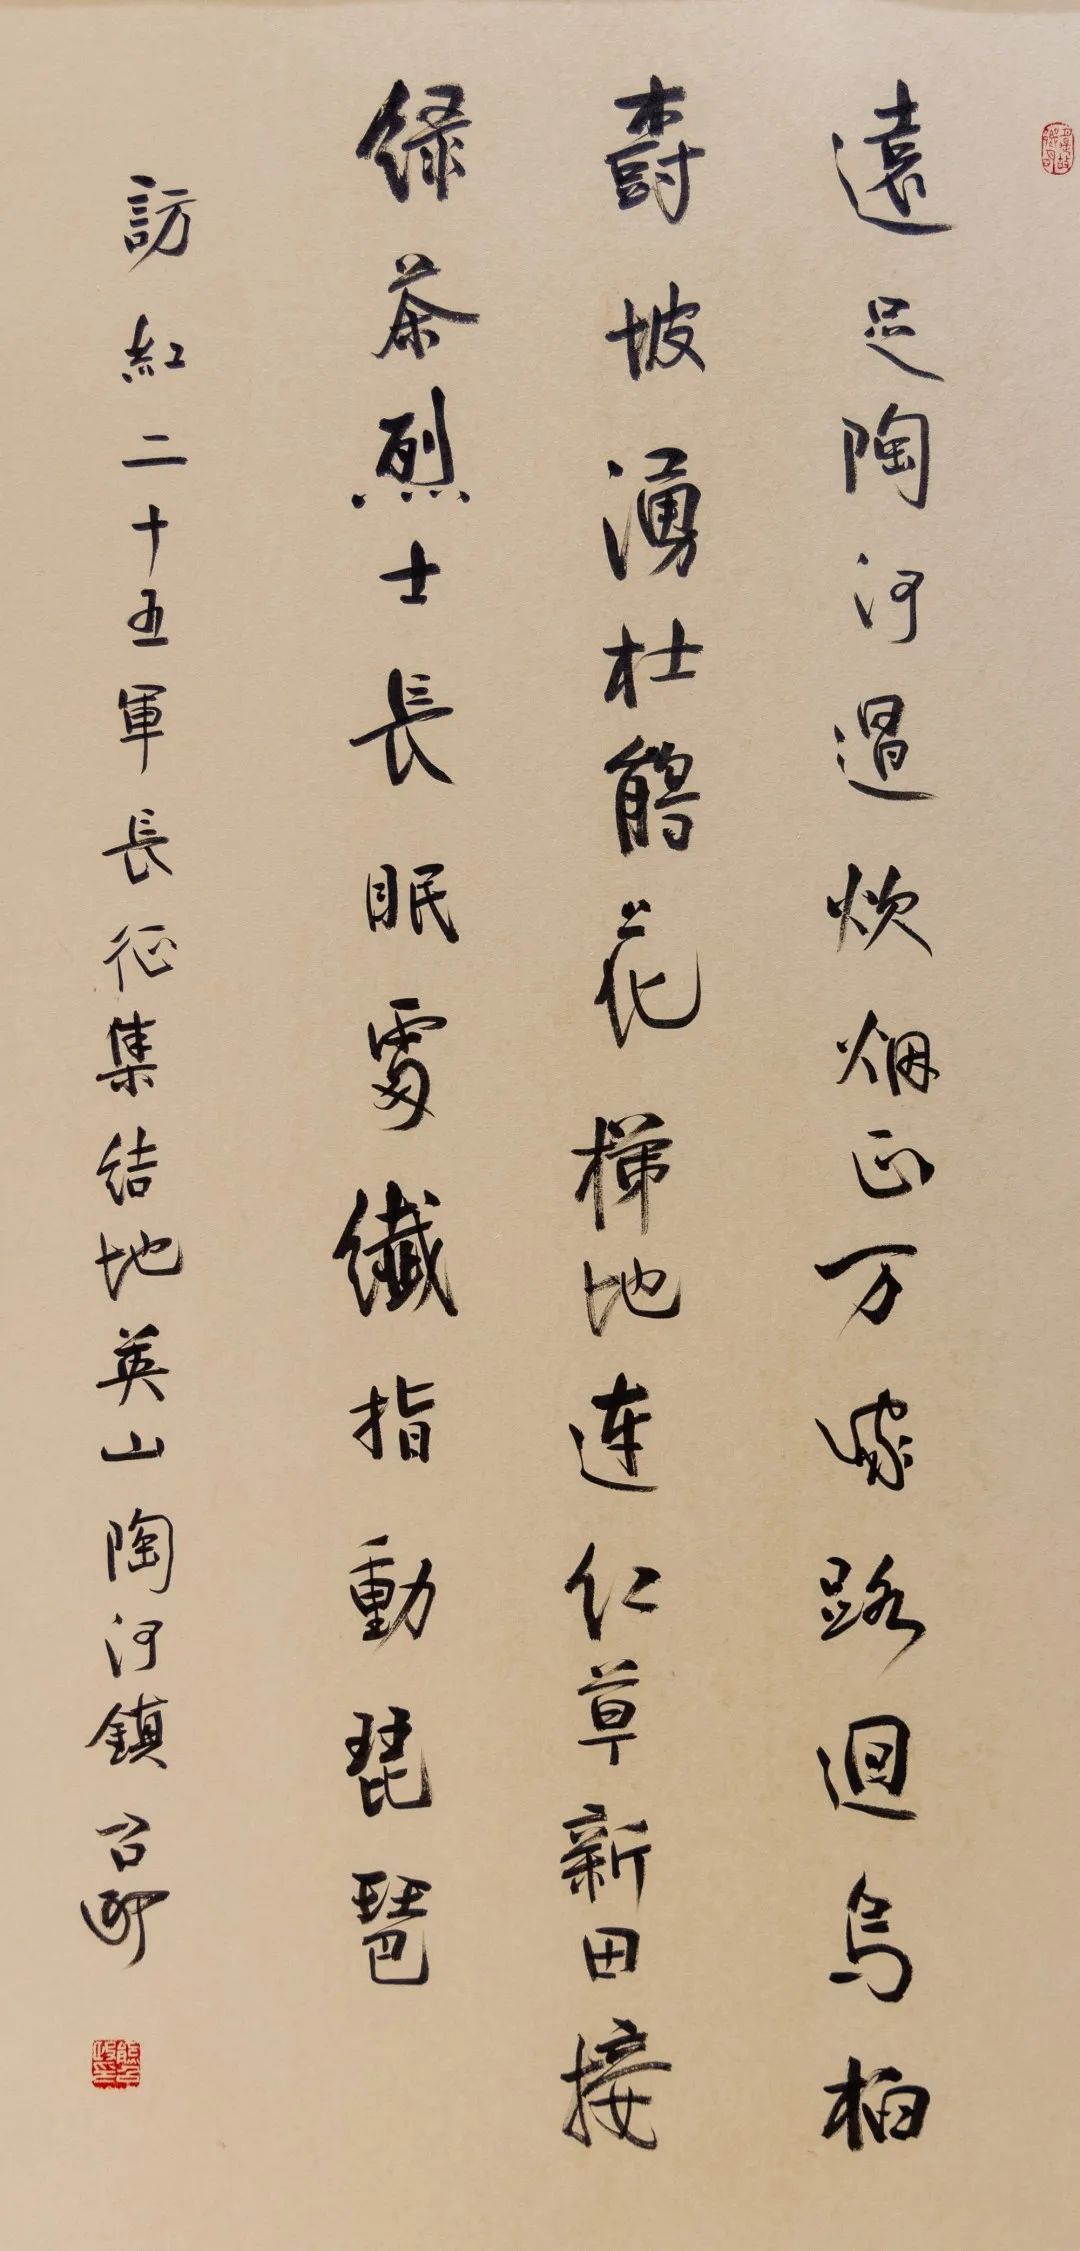 遠足陶河過炊烟正万家路迴烏桕
樹坡湧杜鵑花梯地连仁草新田接
绿茶烈士長眠處纖指動琵琶
訪紅二十五軍長征集结地英山陶河鎮 召政
熊召政印